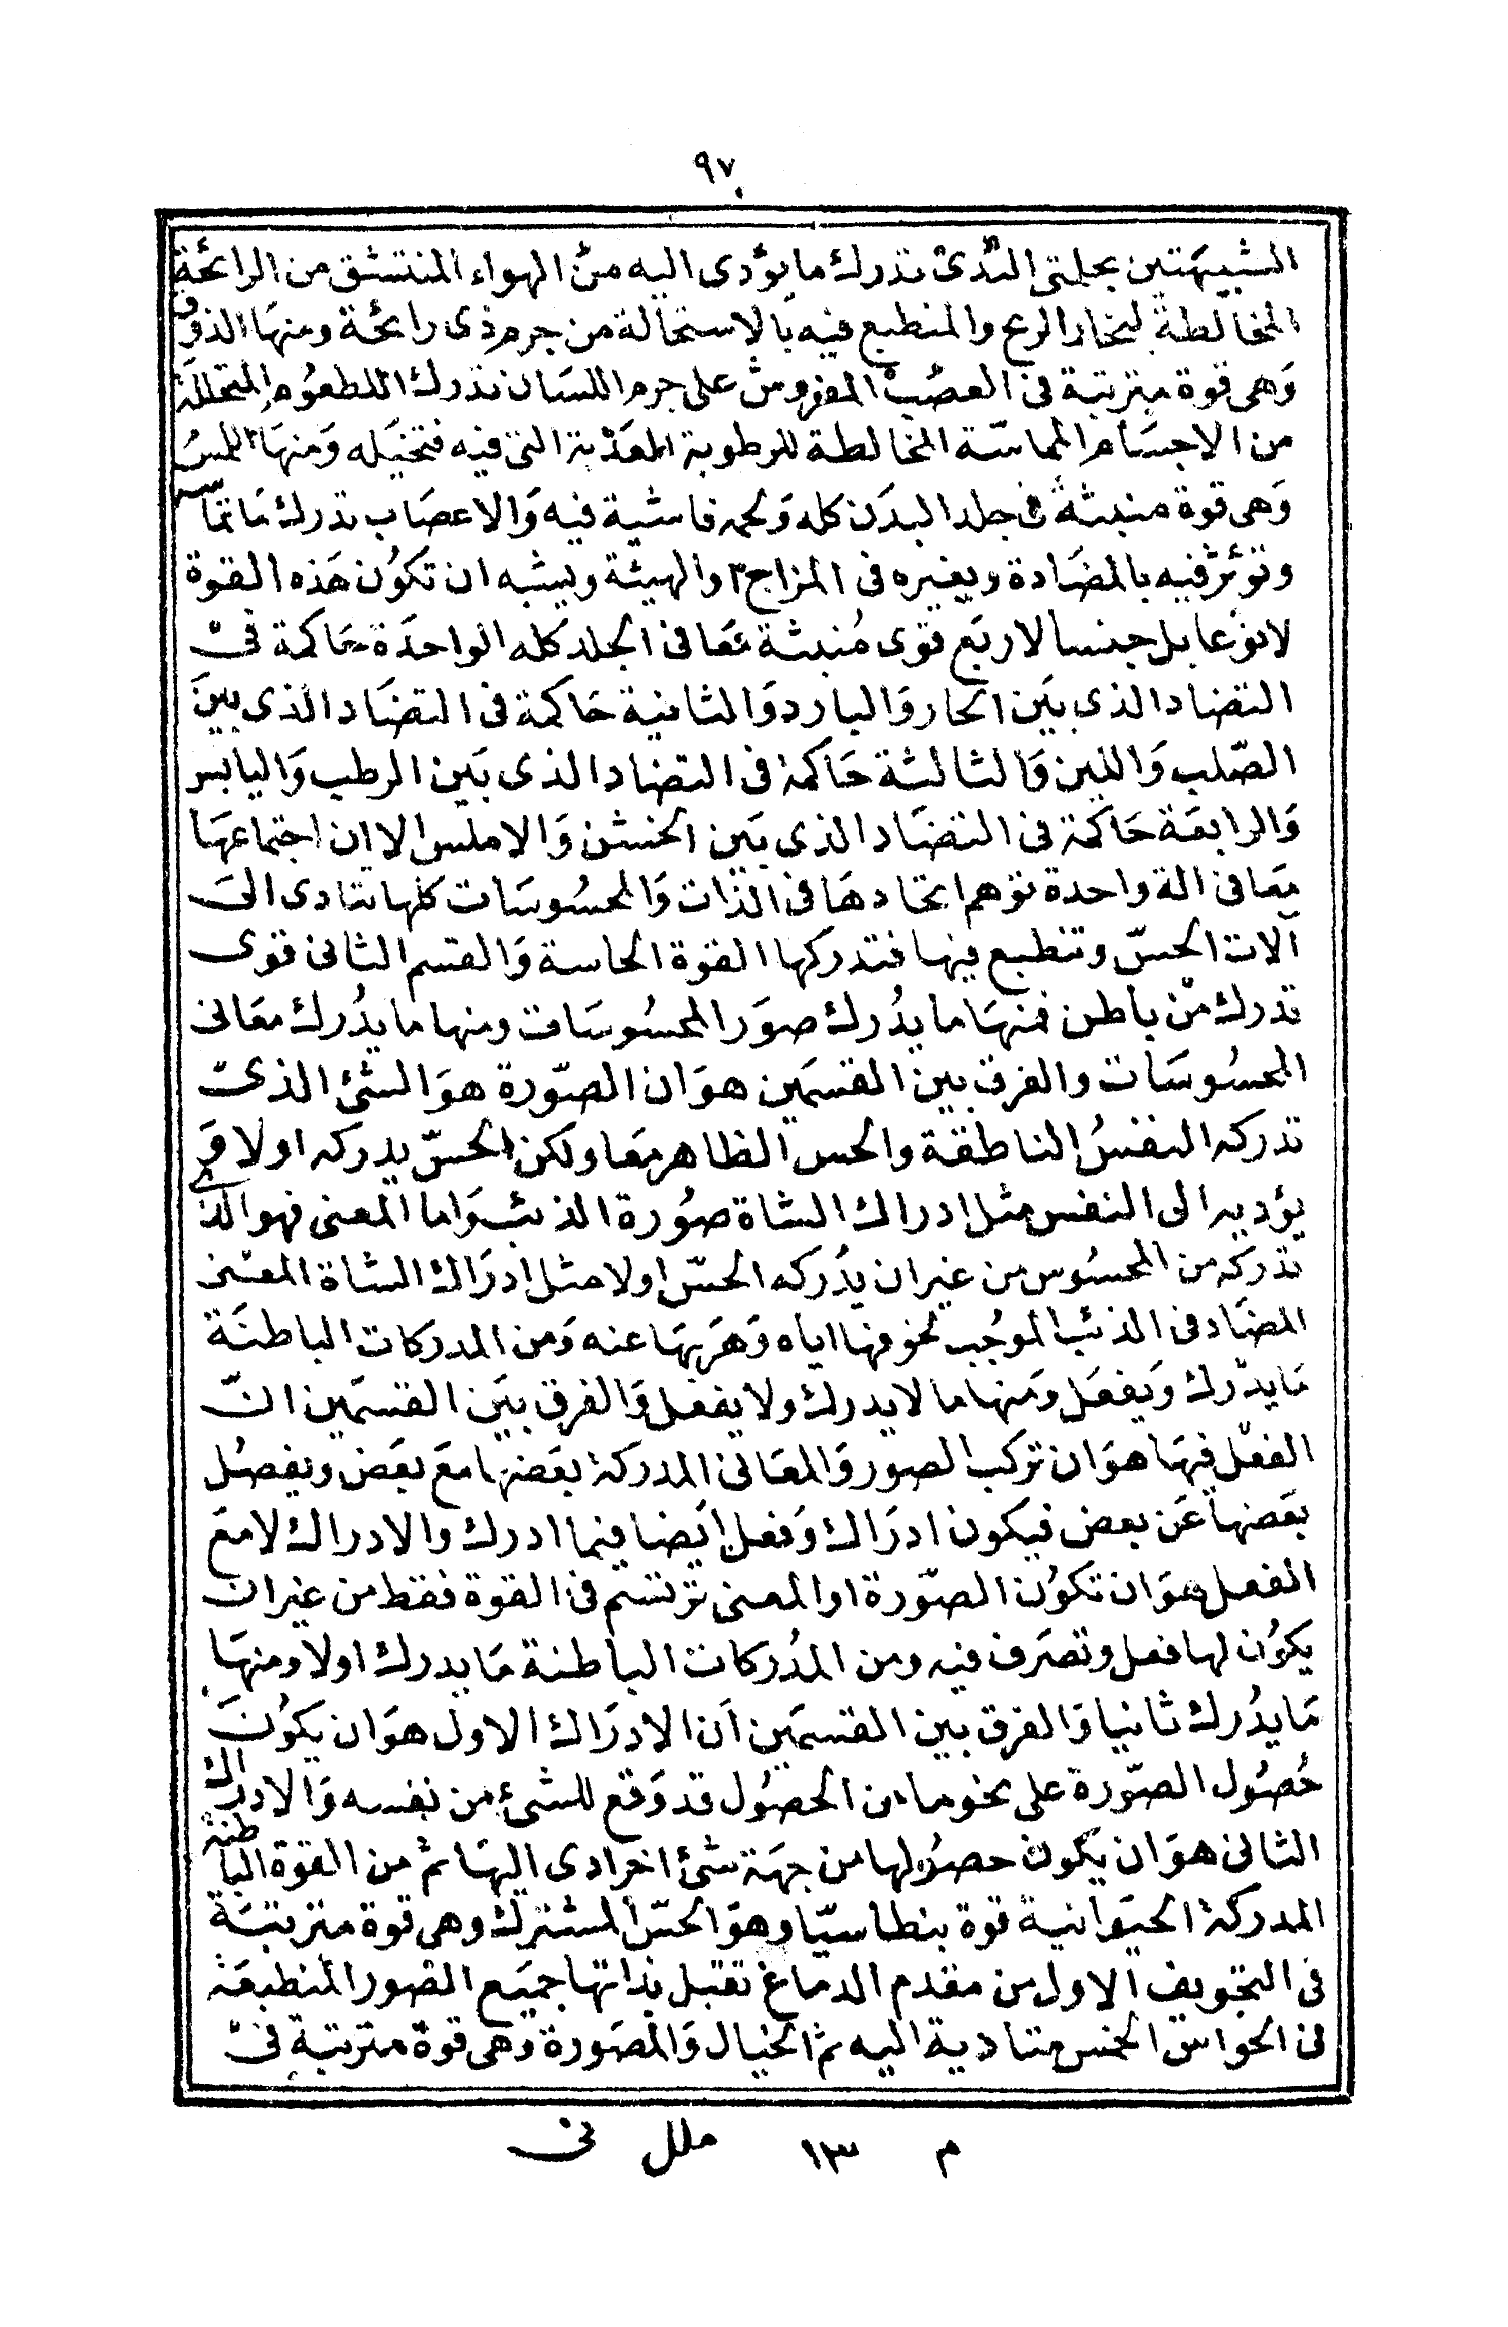 ٩٧
الشبيهتين بحلمتى الثدى تدرك ما يؤدى اليه من الهواء المنتشق من الرائحة
المخالطة لبخار الريح والمنطبع فيه بالاستحالة من جرم ذى رائحة ومنها الذوق
وهى قوة مترتبة فى العصب المفروش على جرم اللسان تدرك الطعوم المتحللة
من الاجسام المماسّة المخالطة للرطوبة العذبة التى فيه فتحيله ومنها اللمس
وهى قوة منبثة فى جلد البدن كله ولحمه فاشية فيه والاعصاب تدرك ما تماسّ
وتؤثر فيه بالمضادة ويغيره فى المزاج والهيئة ويشبه ان تكون هذه القوة
لا نوعا بل جنسا لاربع قوى منبثة معا فى الجلد كله الواحدة حاكمة فى
التضاد الذى بين الحار والبارد والثانية حاكمة فى التضاد الذى بين
الصّلب واللين والثالثة حاكمة فى التضاد الذى بين الرطب واليابس
والرابعة حاكمة فى التضاد الذى بين الخشن والاملس الا ان اجتماعها
معا فى الة واحدة توهم اتحادها فى الذات والمحسوسات كلها تتادى الى
آلات الحسّ وتنطبع فيها فتدركها القوة الحاسة والقسم الثانى قوى
تدرك من باطن فمنها ما يدرك صور المحسوسات ومنها ما يدرك معانى
المحسوسات والفرق بين القسمين هو ان الصّورة هو الشئ الذى
تدركه النفس الناطقة والحس الظاهر معا ولكن الحسّ يدركه اولا و
يؤديه الى النفس مثل ادراك الشاة صورة الذئب واما المعنى فهو الذى
تدركه من المحسوس من غير ان يدركه الحسّ اولا مثل ادراك الشاة المعنى
المضاد فى الذئب الموجب لخوفها اياه وهربها عنه ومن المدركات الباطنة
ما يدرك ويفعل ومنها ما لا يدرك ولا يفعل والفرق بين القسمين انّ
الفعل فيها هو ان تركب الصور والمعانى المدركة بعضها مع بعض ويفصل
بعضها عن بعض فيكون ادراك وفعل ايضا فيما ادرك والادراك لا مع
الفعل هو ان تكون الصّورة او المعنى ترتسم فى القوة فقط من غير ان
يكون لها فعل وتصرف فيه ومن المدركات الباطنة ما يدرك اولا ومنها
ما يدرك ثانيا والفرق بين القسمين ان الادراك الاول هو ان يكون
حصول الصّورة على نحو ما من الحصول قد وقع للشئ من نفسه والادراك
الثانى هو ان يكون حصولها من جهة شئ اخر ادى اليها ثم من القوة الباطنة
المدركة الحيوانية قوة بنطاسيّا وهو الحسّ المشترك وهى قوة مترتبة
فى التجويف الاول من مقدم الدماغ تقبل بذاتها جميع الصّور المنطبعة
فى الحواس الخمس متادية اليه ثم الخيال والمصورة وهى قوة مترتبة فى
م ١٣ ملل فى